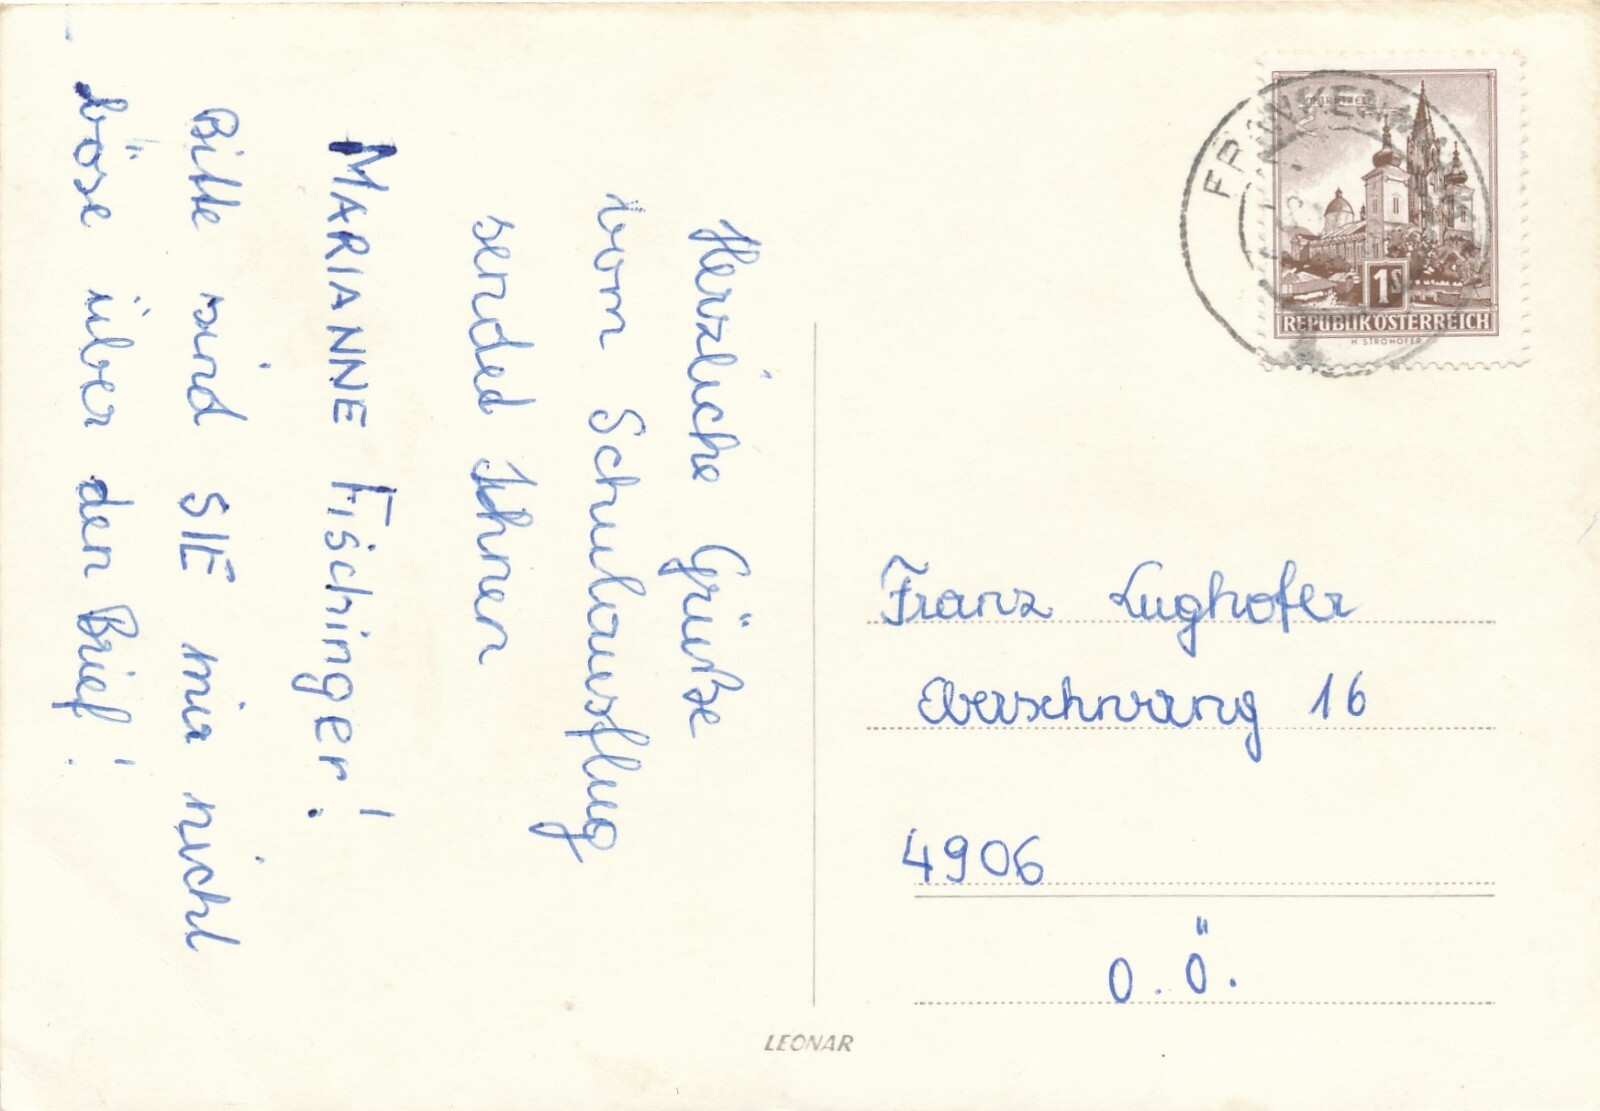 Herzliche Grüße
vom Schulausflug
sended Ihnen
MARIANNE Fischinger!
Bitte sind SIE mir nicht
böse über den Brief!
1S
REPUBLIK ÖSTERREICH
H. STROHOFER
Franz Lughofer
Eberschwang 16
4906
O.Ö.
LEONAR